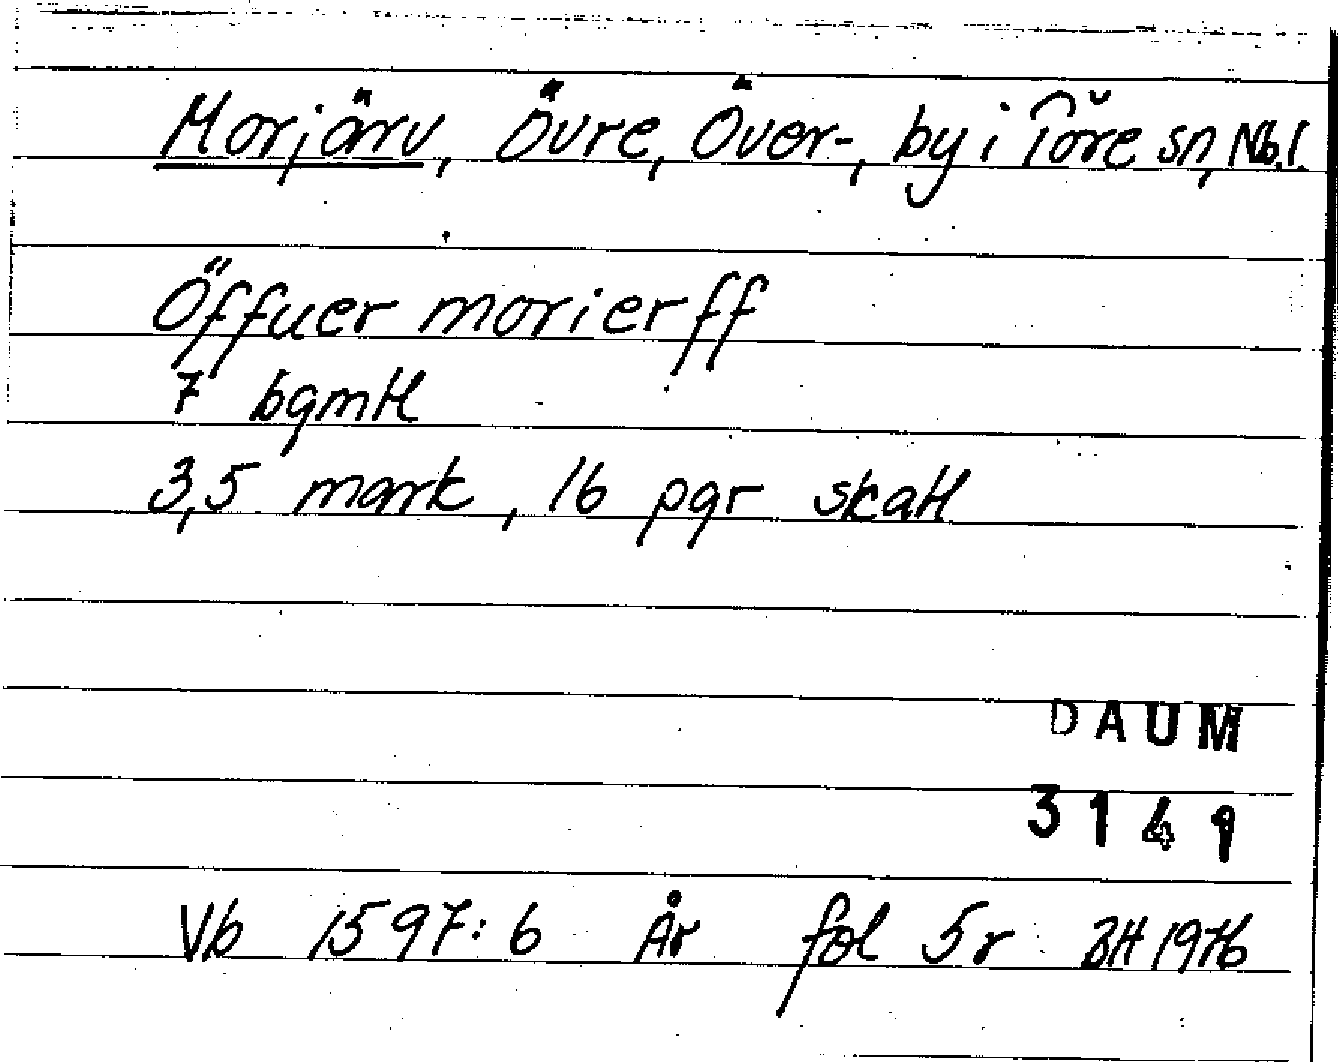 Morjärv, Övre, Över-, by i Töre sn, Nb.l.
Öffuer morierff
7 bgmtl
3,5 mark, 16 pgr skatt
DAUM
3141
Vb 1597:6 År fol 5r BH 1976